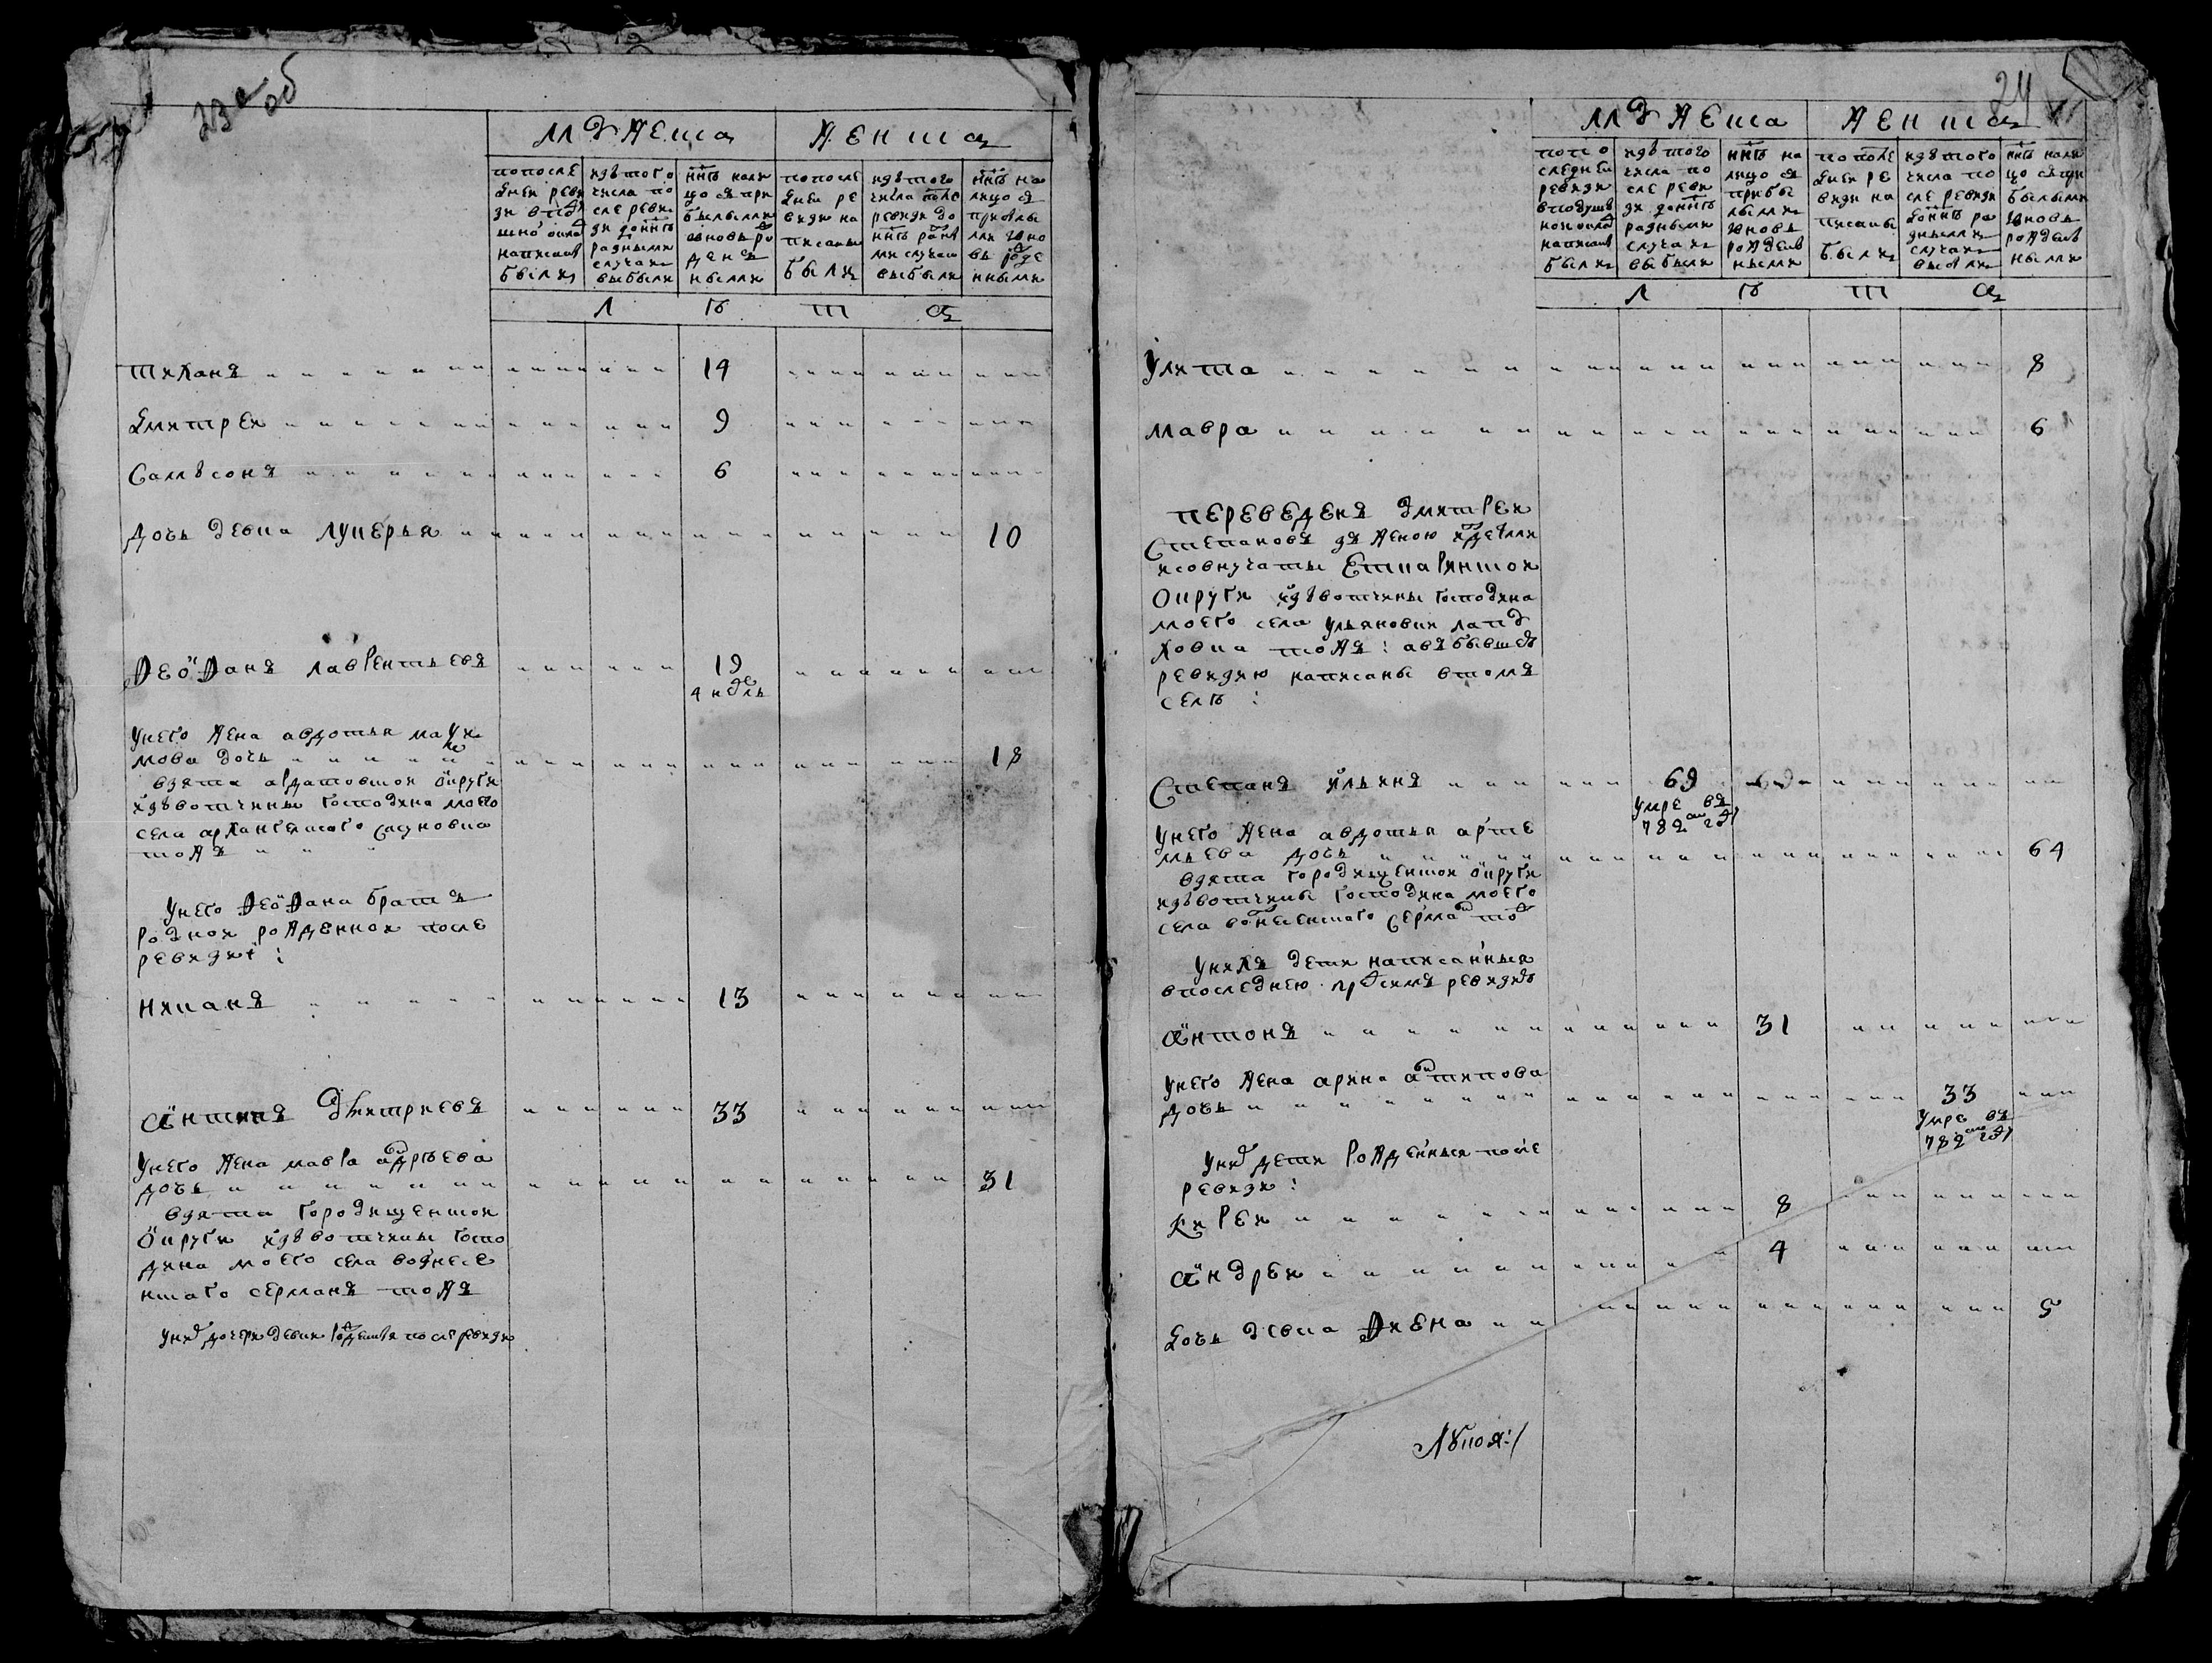 об
мужеска женска
пописле
дней реви
зи
написано
были
изътого
числа по
сле реви
зи донинѣ
разными
случаи
выбыли
нинѣ нали
цо съ при
былыми
ивновь ро
жден
ными
попосле
дней ре
визи на
писаны
были
изътого
числа после
ревизи до
нинѣ разны
ми случаи
выбыли
нинѣ на
лицо съ
прибылы
ми ивно
вь рожде
нными
л ѣ т а
тиханъ 14
дмитрей 9
самъсонъ 6
дочь девка лукерья 10
феофанъ лаврентьевъ 19
4 недль
унего жена авдотья
мова дочь 18
взята ардатовской округи
изъвотчины господина моего
села архангельскаго
тожъ
унего феофана братъ
родной рожденной после
ревизи:
никанъ 13
антипъ дмитриевъ 33
унего жена мавра андрѣева
дочь 31
взята городищенской
округи изъвотчины госпо
дина моего села вознесе
нскаго серманъ тожъ
унихъ дочери девки рожденныя после ревизи
24
мужеска женска
попо
следней
ревизи
вподушно
мокладѣ
написано
были
изътого
числа по
сле реви
зи донинѣ
разными
случаи
выбыли
нинѣ на
лицо съ
прибы
лыми
ивновь
рожден
ными
попосле
дней ре
визи на
писаны
были
изътого
числа по
сле ревизи
донинѣ ра
зными
случаи
выбыли
нинѣ нали
цо съ при
былыми
ивновь
рожден
ными
л ѣ т а
улита 8
мавра 6
переведенъ дмитрей
степановъ зъ женою издетми
исовнучаты
округи изъвотчины господина
моего села ульяновки
ховка тожъ: авъ бывшею
ревизию написаны втомъ
селѣ:
степанъ ильинъ 69
умре въ
782 мъ годѣ
унего жена авдотья арте
мьева дочь 64
взята городищенской округи
изъвотчины господина моего
села вознесенскаго серманъ тожъ
унихъ дети написанныя
впоследнею предсимъ ревизию
антонъ 31
унего жена арина антипова
дочь 33
умре въ
782 мъ годѣ
унихъ дети рожденныя после
ревизи:
кирей 8
андрей 4
дочь девка фиена 5